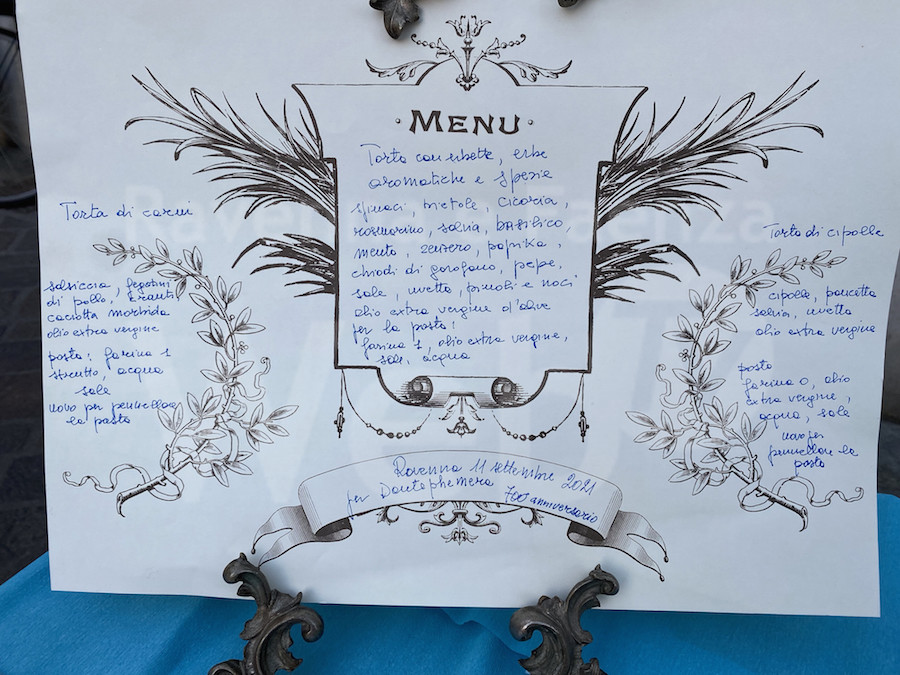 MENU
Torta con erbette, erbe
aromatiche e spezie
spinaci, bietole, cicoria,
rosmarino, salvia, basilico,
menta, zenzero, paprika,
chiodi di garofano, pepe,
sale, uvetta, pinoli e noci
olio extra vergine d'olive
per la pasta:
farina 1, olio extra vergine,
sale, acqua
Torta di carni
salsiccia, fegatini
di pollo,
caciotta morbida
olio extra vergine
pasta: farina 1
strutto, acqua
sale
uovo per pennellare
la pasta
Torta di cipolle
cipolle, pancetta
salvia, uvetta
olio extra vergine
pasta
farina 0, olio
extra vergine,
acqua, sale
uovo per
pennellare la
pasta
Ravenna 11 settembre 2021
per Dantephemera 700 anniversario